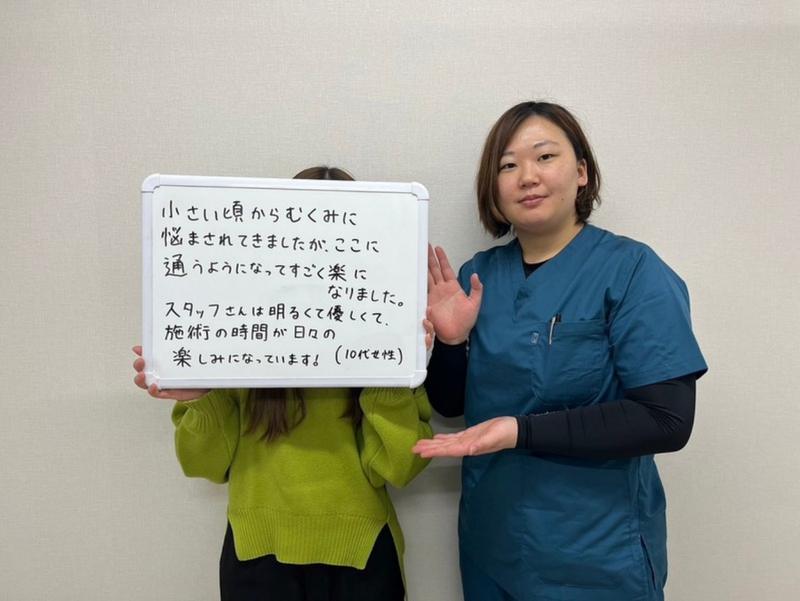 小さい頃からむくみに
悩まされてきましたが、ここに
通うようになってすごく楽に
なりました。
スタッフさんは明るくて優しくて、
施術の時間が日々の
楽しみになっています! (10代女性)